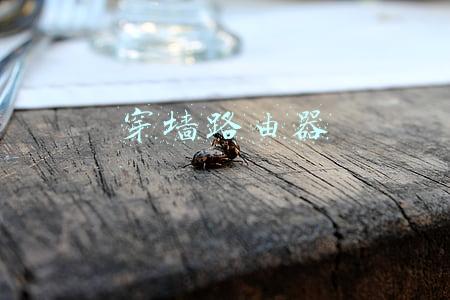 穿墙路由器